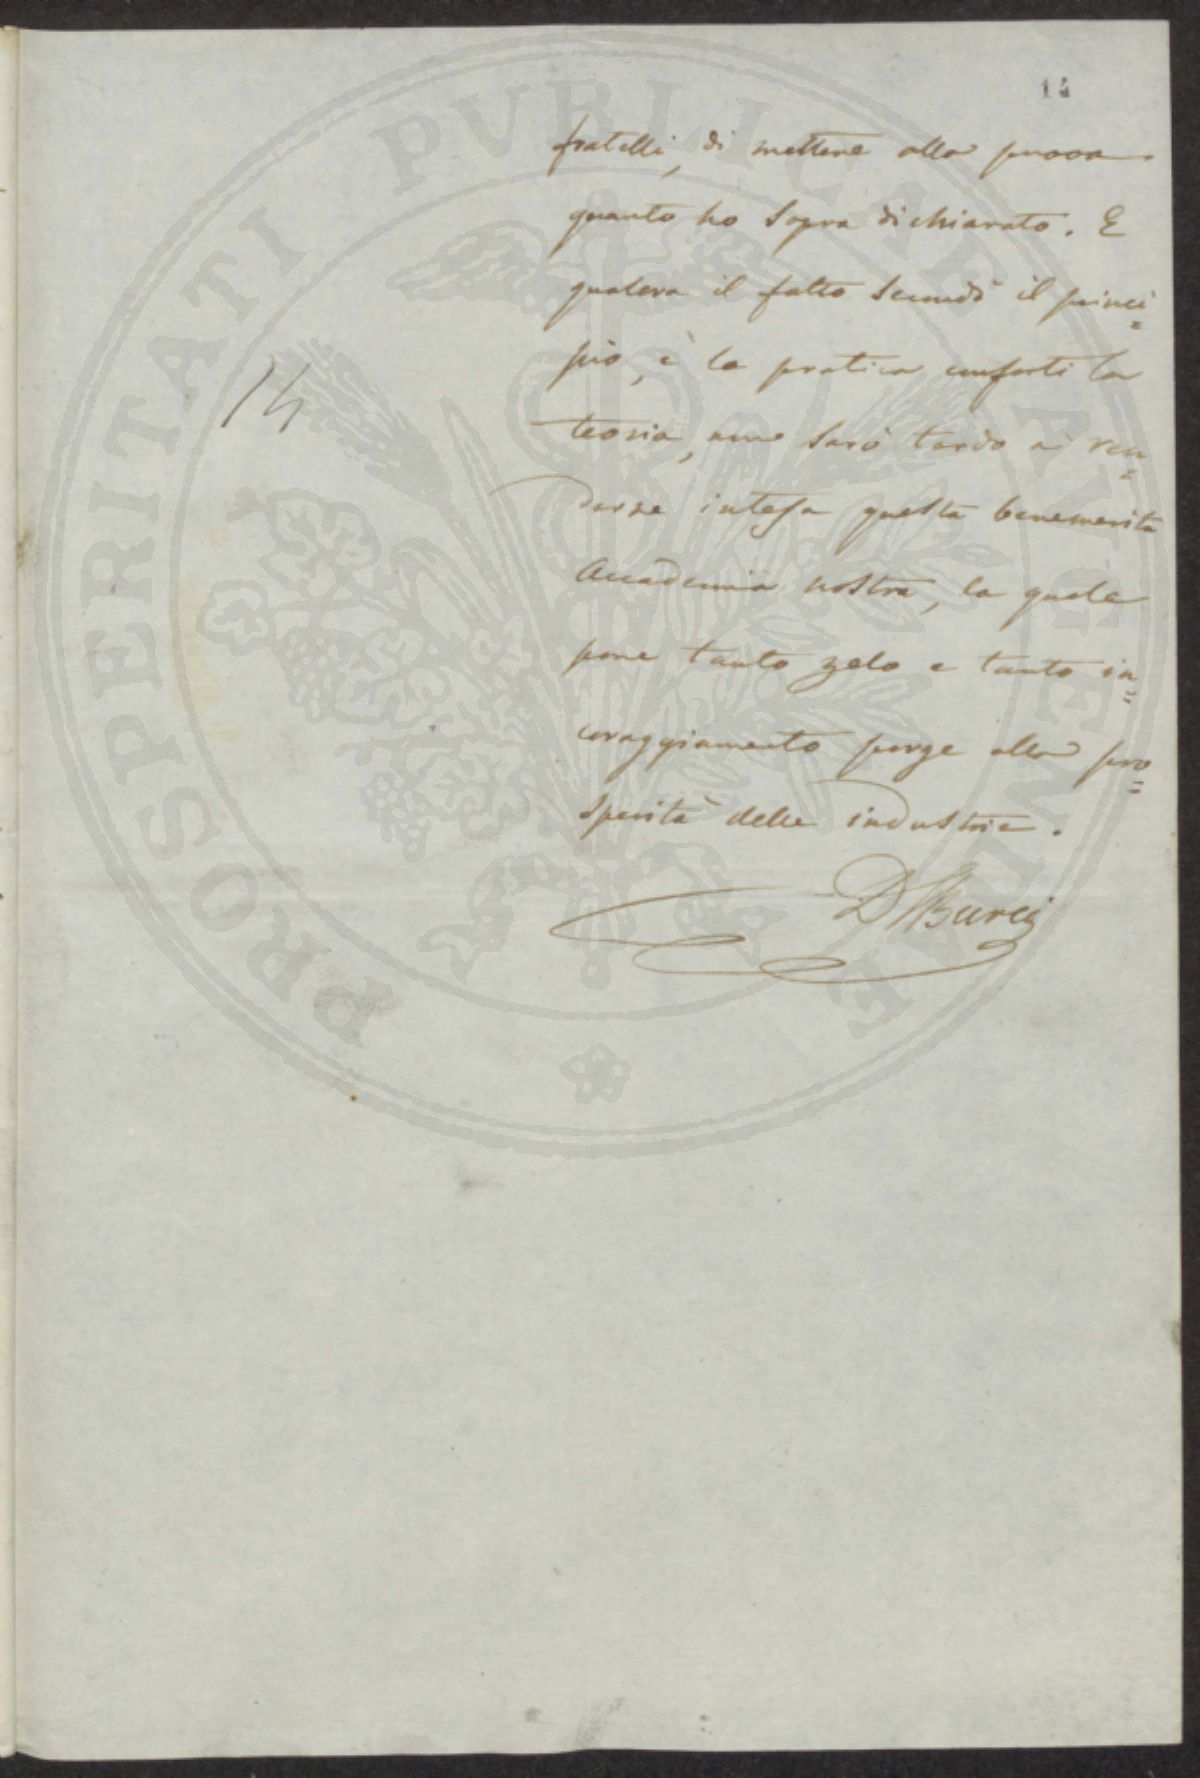 14
fratelli, di mettere alla prova
quanto ho sopra dichiarato. E
qualora il fatto secondi il princi=
pio, e la pratica conforti la
14
teoria, non sarò tardo a ren=
derne intesa questa benemerita
Accademia nostra, la quale
pone tanto zelo e tanto in=
coraggiamento porge alla pro=
sperità delle industrie.
D Burci
PROSPERITATI PVBLICAE AVGENDAE